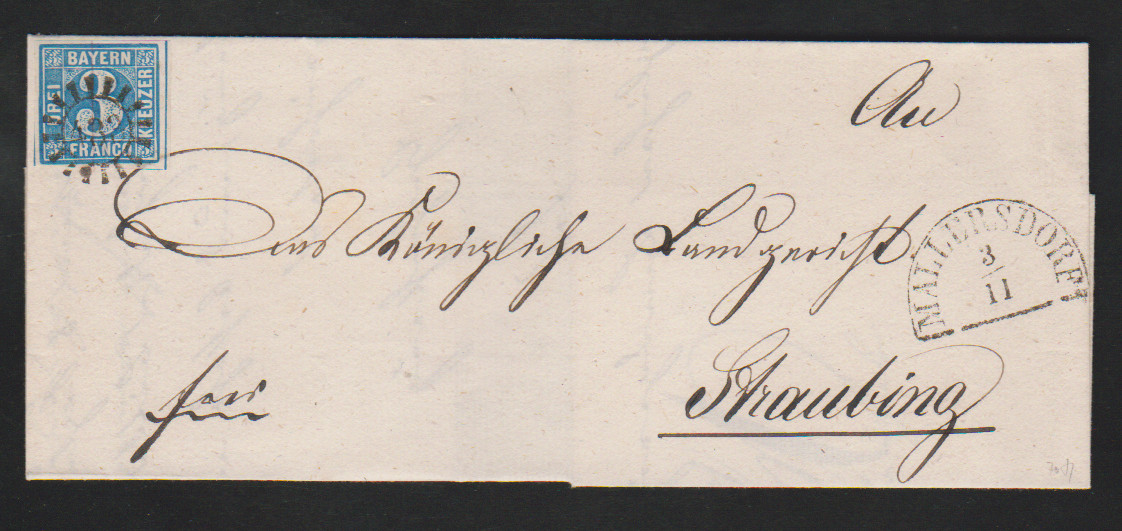 BAYERN
DREI
3
KREUZER
FRANCO
An
Das Königliche Landgericht
MALLERSDORF
3
11
frei
Straubing